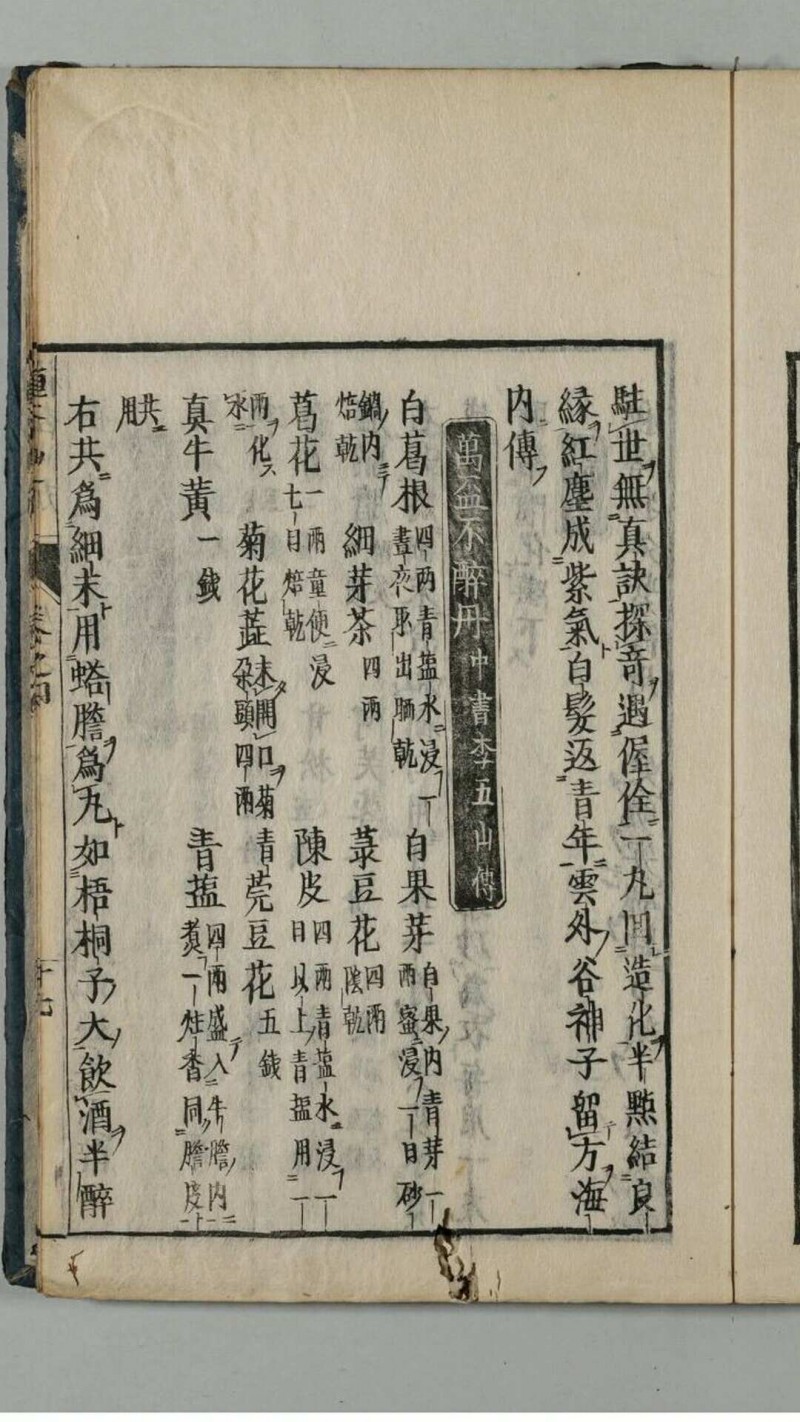 駐世無真訣探竒遇偓佺一丸回造化半點結良
緣紅塵成紫氣白髮返青年雲外谷神子留方海
内傳
萬盃不醉丹中書李五山傳
白葛根四两青盐水浸一晝夜取出晒乾 白果芽白果内青芽一两蜜浸一日砂
鍋内焙乾 細芽茶四两 菉豆花四两陰乾
葛花一两童便浸七日焙乾 陳皮四两青盐水浸一日以上青盐用一
两化水 菊花蕋未開口菊朶頭四两 青莞豆花五錢
真牛黄一錢 青盐四两盛入牛膽内煮一炷香同膽皮
共用
右共爲細末用蟒膽爲丸如梧桐子大飲酒半醉
卷之四
十七